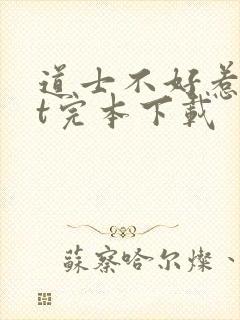 道士不好惹
t完本下载
蘇察哈尔燦、